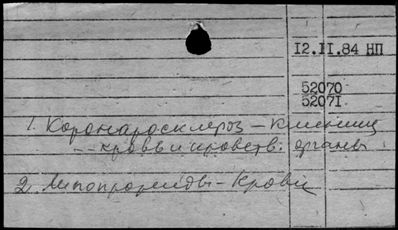 12.II.84 НП
52070
52071.
1. Коронаросклероз – клиниц
-- кровь и кроветв. органы.
2. Липопротеиды – Крови